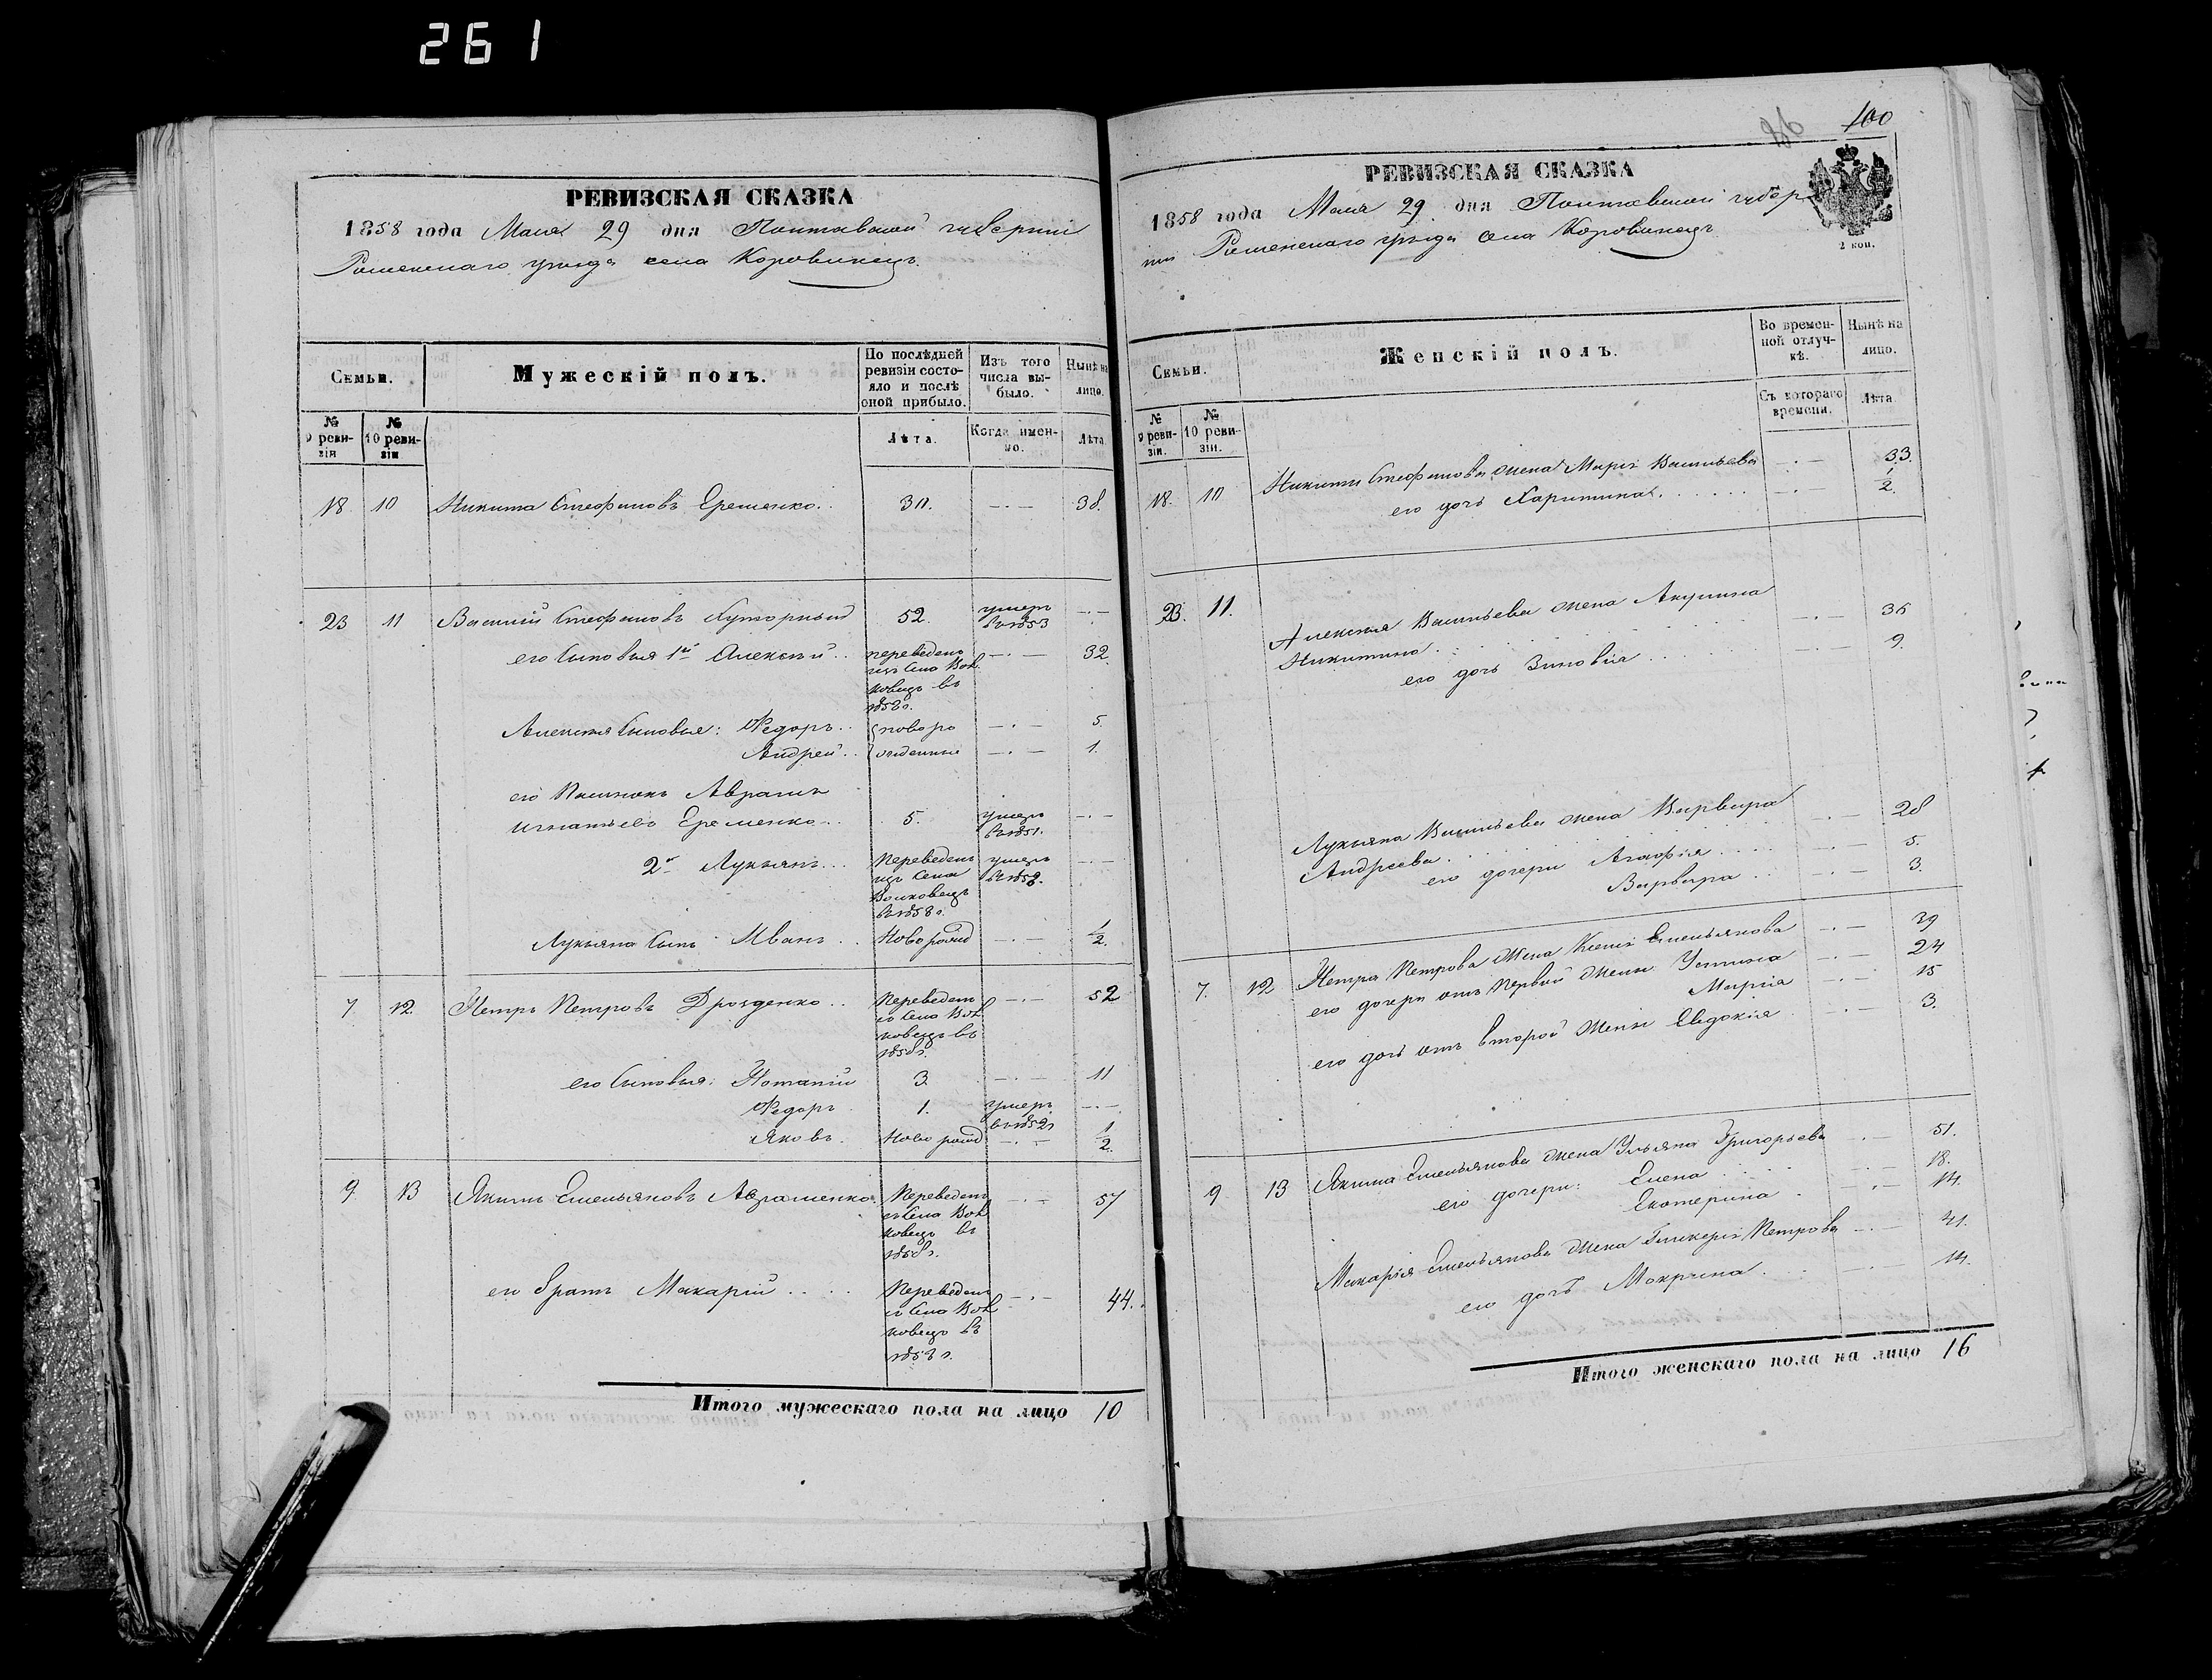 261
РЕВИЗСКАЯ СКАЗКА
1858 года Мая 29 дня Полтавской губерніи
Роменскаго уѣзда села Коровинецъ.
Семьи.
Мужескій полъ.
По послѣдней ревизіи состояло и послѣ оной прибыло.
Изъ того числа выбыло.
Нынѣ на лицо.
№ 9 ревизіи
№ 10 ревизіи
Лѣта.
Когда именно.
Лѣта
18 10 Никита Стефановъ Еременко.. 30. —·— 38.
23 11 Василій Стефановъ Хуторный 52. умеръ въ 1853 —·—
его сыновья 1й Алексѣй.. переведенъ —·— 32
изъ села Вол
ковецъ въ
1858г.
Алексѣя сыновья: Ѳедоръ.. новоро —·— 5.
Андрей.. жденные —·— 1.
его Аврамъ
Игнатьевъ Еременко.. 5. умеръ въ 1851. —·—
2й Лукьянъ... Переведенъ умеръ —·—
изъ села
Волковецъ
въ 1858г.
Лукьяна сынъ Иванъ.. Новорожд —·— 1/2.
7. 12. Петръ Петровъ Дрозденко.. Переведенъ —·— 52
съ села Вол
ковецъ въ
1858г.
его сыновья: Потапій 3. —·— 11
Ѳедоръ 1. умеръ въ 1852г —·—
Яковъ. Новорожд —·— 1/2.
9. 13 Якимъ Емельяновъ Авраменко Переведенъ —·— 57
съ села Вол
ковецъ въ
1858г.
его братъ Макарій.... Переведенъ —·— 44.
съ села Вол
ковецъ въ
1858г.
Итого мужескаго пола на лицо 10
100
РЕВИЗСКАЯ СКАЗКА
2 коп.
1858 года Мая 29 дня Полтавской губер
ніи Роменскаго уѣзда села Коровинецъ
Семьи.
Женскій полъ.
Во временной отлучкѣ.
Нынѣ на лицо.
№ 9 ревизіи.
№ 10 ревизіи.
Съ котораго времени.
Лѣта.
18. 10 Никиты Стефанова жена Марія Васильева —·— 33.
его дочь Харитина...... —·— 1/2.
23. 11. Алексѣя Васильева жена Акулина
Никитина.. —·— 36
его дочь Зиновія.... —·— 9.
Лукьяна Васильева жена Варвара
Андреева. —·— 28
его дочери Агафія.... —·— 5.
Варвара... —·— 3.
7. 12 Петра Петрова жена Ксенія Емельянова —·— 39
его дочери отъ первой жены Устинья —·— 24
Марія —·— 15
его дочь отъ второй жены Евдокія —·— 3.
9 13 Якима Емельянова жена Ульяна Григорьева —·— 51.
его дочери: Елена.... —·— 18.
Екатерина. —·— 14.
Макарія Емельянова жена Гликерія Петрова —·— 41.
его дочь Мокрина. —·— 14.
Итого женскаго пола на лицо 16